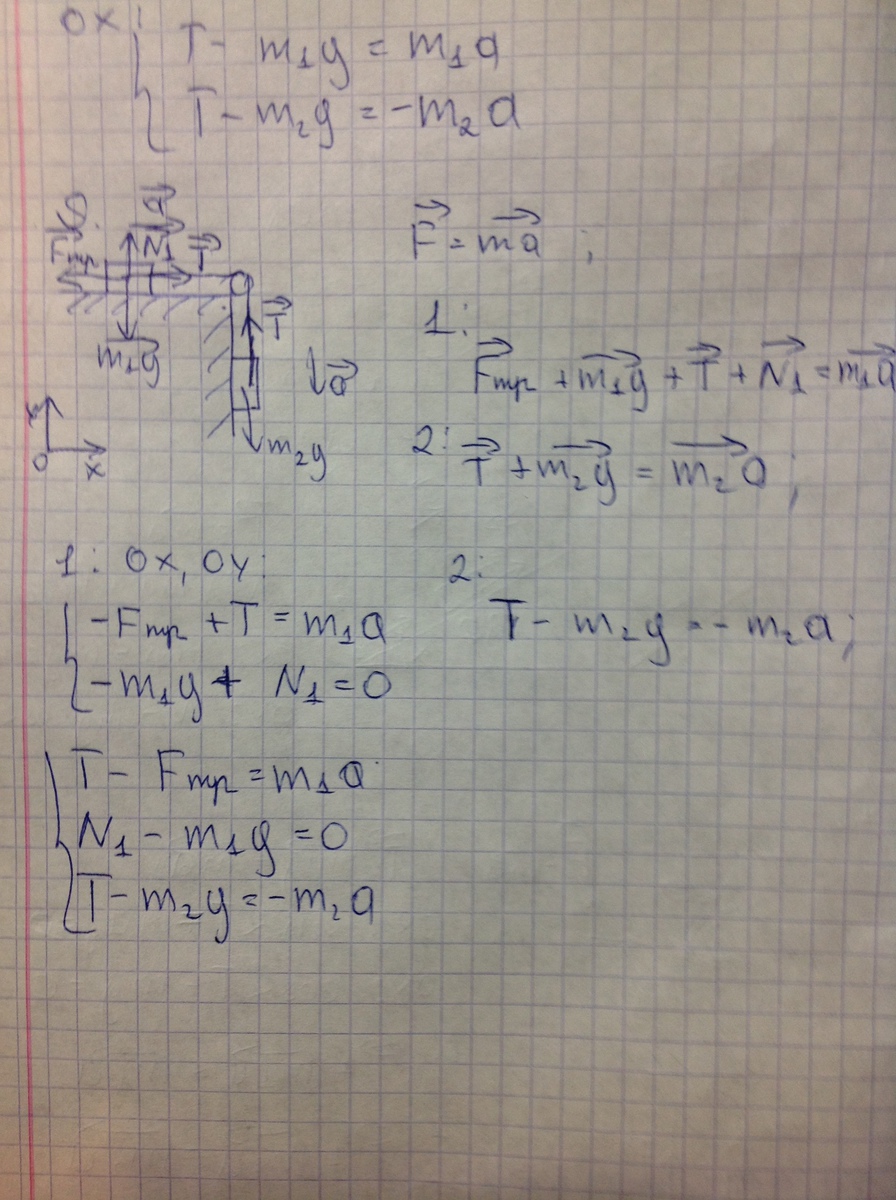 OX:
T - m₁g = m₁a
T - m₂g = -m₂a
a
Fтр N₁ T
m₁g
T
a
m₂g
y
O x
F = ma ;
1:
Fтр + m₁g + T + N₁ = m₁a
2: T + m₂g = m₂a ;
1: OX, OY:
-Fтр + T = m₁a
-m₁g + N₁ = 0
2:
T - m₂g = -m₂a;
T - Fтр = m₁a
N₁ - m₁g = 0
T - m₂g = -m₂a